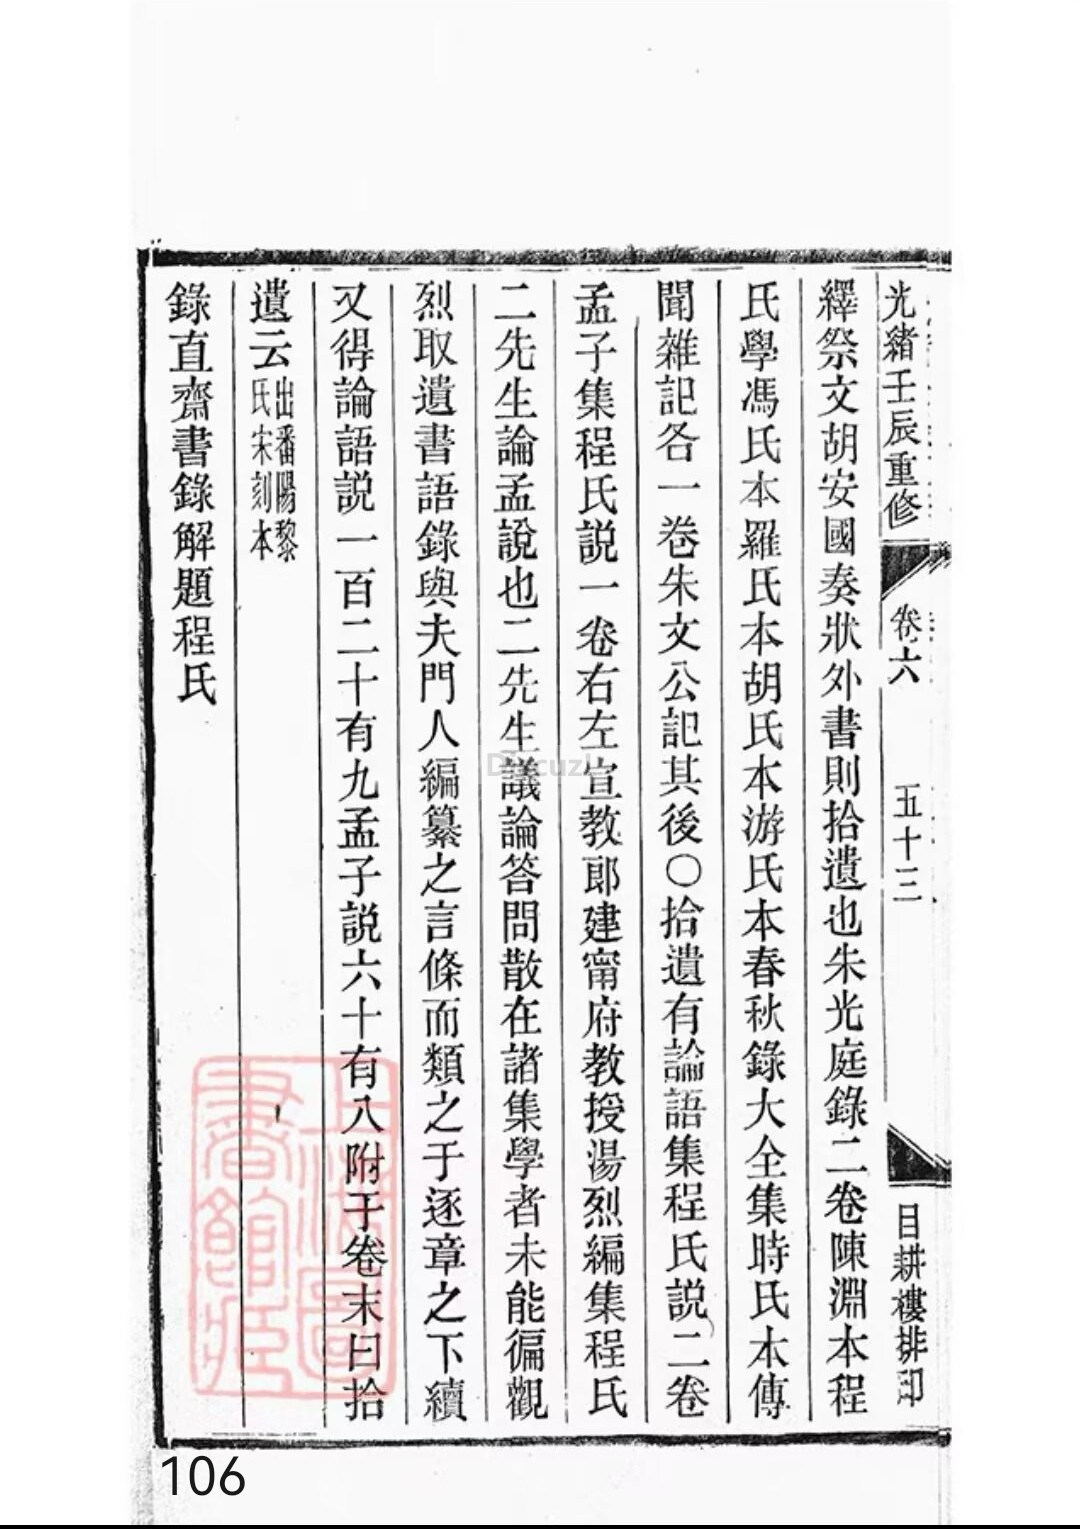 光緒壬辰重修
卷六
五十三
目耕樓排印
繹祭文胡安國奏狀外書則拾遺也朱光庭錄二卷陳淵本程
氏學馮氏本羅氏本胡氏本游氏本春秋錄大全集時氏本傳
聞雜記各一卷朱文公記其後〇拾遺有論語集程氏説二卷
孟子集程氏説一卷右左宣教郎建甯府教授湯烈編集程氏
二先生論孟說也二先生議論答問散在諸集學者未能徧觀
烈取遺書語錄與夫門人編纂之言條而類之于逐章之下續
又得論語説一百二十有九孟子説六十有八附于卷末曰拾
遺云
出番陽黎
氏宋刻本
錄直齋書錄解題程氏
上海圖
書館藏
Discuz!
106